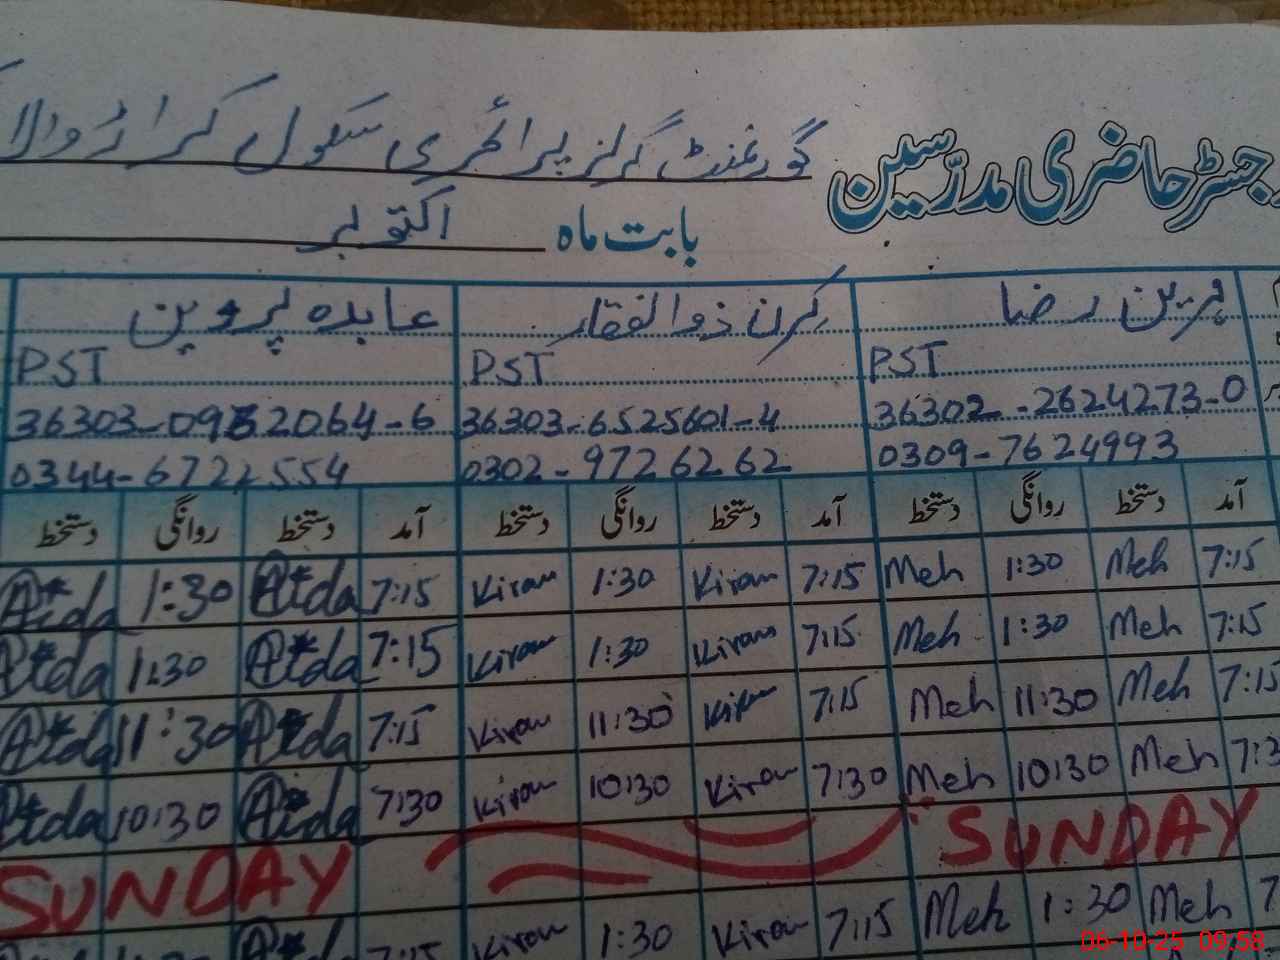 رجسٹر حاضری مدرّسین گورنمنٹ گرلز پرائمری سکول
بابت ماہ اکتوبر
مہرین رضا کرن ذوالفقار عابدہ پروین
PST PST PST
36303-0952064-6 36303-6525601-4 36302--2624273-0
0344-6722554 0302-9726262 0309-7624993
آمد دستخط روانگی دستخط آمد دستخط روانگی دستخط آمد دستخط روانگی دستخط
1:30 7:15 Kiran 1:30 Kiran 7:15 Meh 1:30 Meh 7:15
1:30 7:15 Kiran 1:30 Kiran 7:15 Meh 1:30 Meh 7:15
11:30 7:15 Kiran 11:30 Kiran 7:15 Meh 11:30 Meh 7:15
10:30 7:30 Kiran 10:30 Kiran 7:30 Meh 10:30 Meh
SUNDAY SUNDAY
7:15 Kiran 1:30 Kiran 7:15 Meh 1:30 Meh
06-10-25 09:58